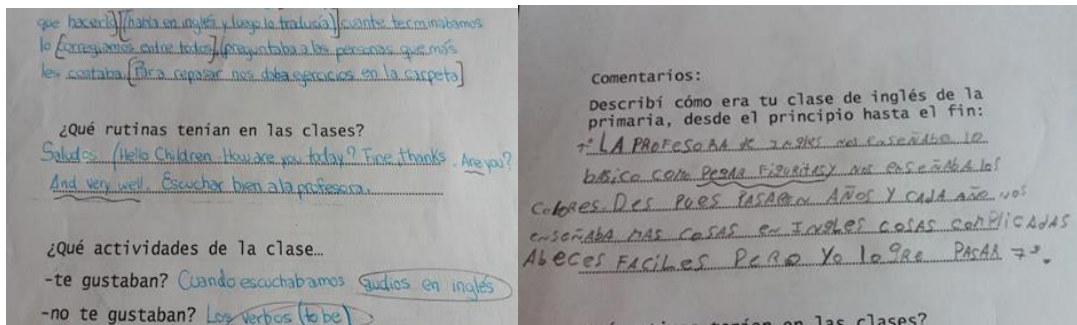 que hacerlo] [habla en inglés y luego lo traducía] cuante terminabamos
lo [corregiamos entre todos] (preguntaba a las personas que más
les costaba. [Para repasar nos daba ejercicios en la carpeta]
¿Qué rutinas tenían en las clases?
Saludos (Hello Children. How are you today? Fine, thanks. Are you?
And very well. Escuchar bien a la profesora.
¿Qué actividades de la clase…
-te gustaban? Cuando escuchabamos audios en inglés
-no te gustaban? Los verbos (to be)
Comentarios:
Describí cómo era tu clase de inglés de la
primaria, desde el principio hasta el fin:
LA PROFESORA de ingles nos enseñaba lo
basico como pegar figuritas y nos enseñaba los
colores. Des pues PASARon AÑos Y CADA Año nos
enseñaba mas cosas en Ingles cosas complicadas
Abeces FACiles Pero Yo logre PASAR 7º.
las clases?